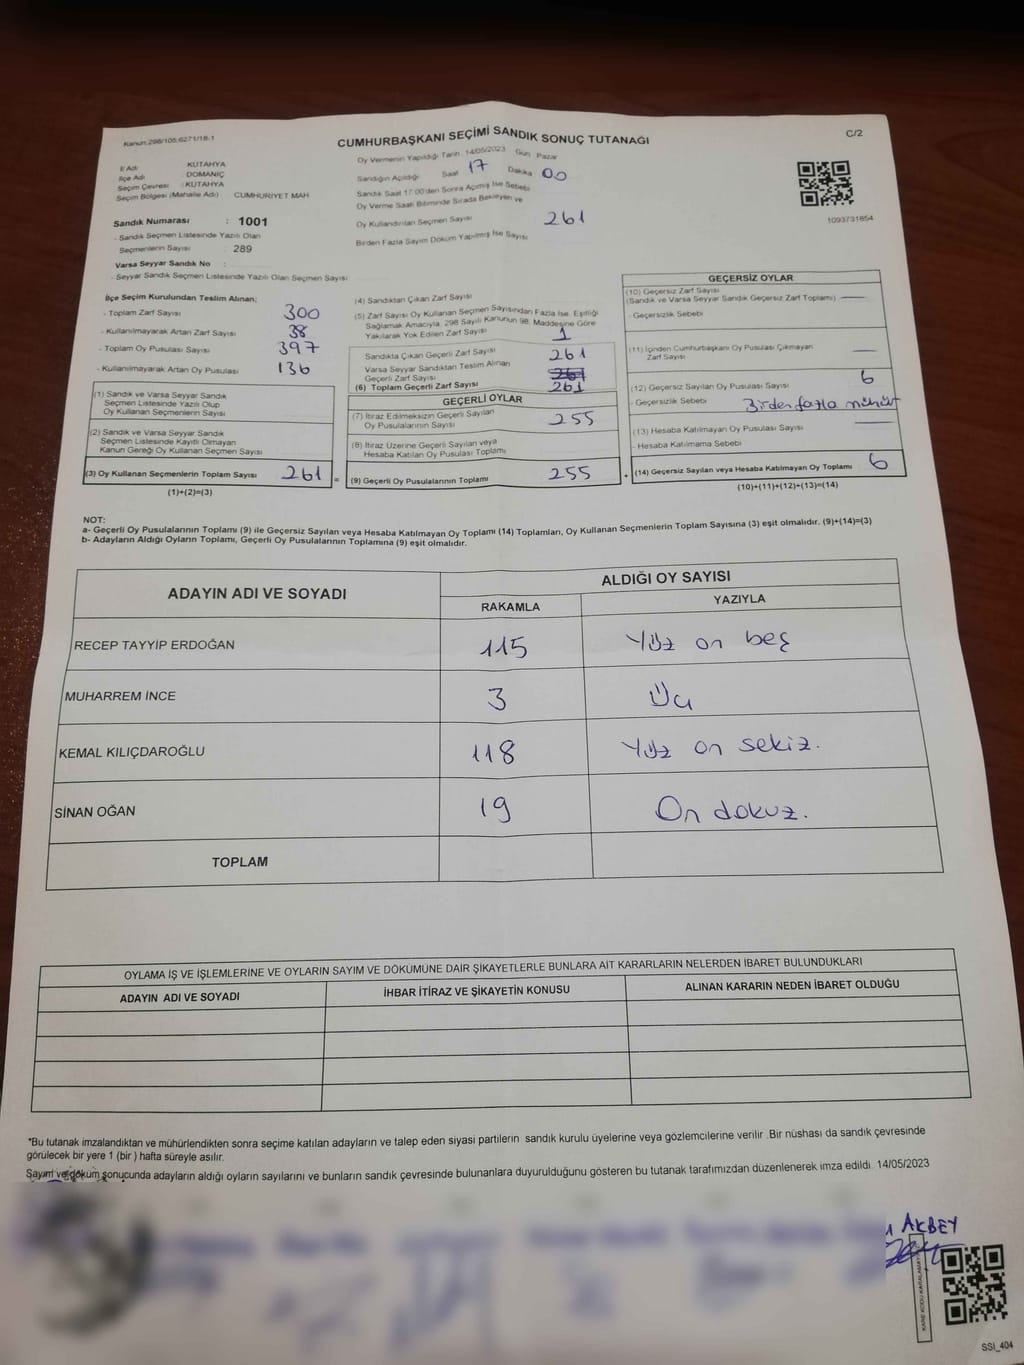 Kanun:298/105;6271/18-1
CUMHURBAŞKANI SEÇİMİ SANDIK SONUÇ TUTANAĞI
C/2
İl Adı KÜTAHYA
İlçe Adı DOMANİÇ
Seçim Çevresi : KÜTAHYA
Seçim Bölgesi (Mahalle Adı) CUMHURİYET MAH.
Sandık Numarası : 1001
- Sandık Seçmen Listesinde Yazılı Olan
Seçmenlerin Sayısı : 289
Varsa Seyyar Sandık No :
- Seyyar Sandık Seçmen Listesinde Yazılı Olan Seçmen Sayısı
Oy Vermenin Yapıldığı Tarih 14/05/2023 Gün Pazar
Sandığın Açıldığı Saat 17 Dakika 00
Sandık Saat 17:00'den Sonra Açılmış İse Sebebi
Oy Verme Saati Bitiminde Sırada Bekleyen ve
Oy Kullandırılan Seçmen Sayısı 261
Birden Fazla Sayım Döküm Yapılmış İse Sayısı
1093731854
İlçe Seçim Kurulundan Teslim Alınan;
- Toplam Zarf Sayısı 300
- Kullanılmayarak Artan Zarf Sayısı 38
- Toplam Oy Pusulası Sayısı 397
- Kullanılmayarak Artan Oy Pusulası 136
(1) Sandık ve Varsa Seyyar Sandık
Seçmen Listesinde Yazılı Olup
Oy Kullanan Seçmenlerin Sayısı
(2) Sandık ve Varsa Seyyar Sandık
Seçmen Listesinde Kayıtlı Olmayan
Kanun Gereği Oy Kullanan Seçmen Sayısı
(3) Oy Kullanan Seçmenlerin Toplam Sayısı 261 =
(1)+(2)=(3)
(4) Sandıktan Çıkan Zarf Sayısı
(5) Zarf Sayısı Oy Kullanan Seçmen Sayısından Fazla İse, Eşitliği
Sağlamak Amacıyla, 298 Sayılı Kanunun 98. Maddesine Göre
Yakılarak Yok Edilen Zarf Sayısı 1
Sandıkta Çıkan Geçerli Zarf Sayısı 261
Varsa Seyyar Sandıktan Teslim Alınan
Geçerli Zarf Sayısı 261
(6) Toplam Geçerli Zarf Sayısı 261
GEÇERLİ OYLAR
(7) İtiraz Edilmeksizin Geçerli Sayılan
Oy Pusulasının Sayısı 255
(8) İtiraz Üzerine Geçerli Sayılan veya
Hesaba Katılan Oy Pusulası Toplamı
(9) Geçerli Oy Pusulalarının Toplamı 255 +
GEÇERSİZ OYLAR
(10) Geçersiz Zarf Sayısı
(Sandık ve Varsa Seyyar Sandık Geçersiz Zarf Toplamı) —
- Geçersizlik Sebebi
(11) İçinden Cumhurbaşkanı Oy Pusulası Çıkmayan
Zarf Sayısı —
(12) Geçersiz Sayılan Oy Pusulası Sayısı 6
- Geçersizlik Sebebi Birden fazla mühür
(13) Hesaba Katılmayan Oy Pusulası Sayısı —
- Hesaba Katılmama Sebebi
(14) Geçersiz Sayılan veya Hesaba Katılmayan Oy Toplamı 6
(10)+(11)+(12)+(13)=(14)
NOT:
a- Geçerli Oy Pusulalarının Toplamı (9) ile Geçersiz Sayılan veya Hesaba Katılmayan Oy Toplamı (14) Toplamları, Oy Kullanan Seçmenlerin Toplam Sayısına (3) eşit olmalıdır. (9)+(14)=(3)
b- Adayların Aldığı Oyların Toplamı, Geçerli Oy Pusulalarının Toplamına (9) eşit olmalıdır.
ADAYIN ADI VE SOYADI
ALDIĞI OY SAYISI
RAKAMLA YAZIYLA
RECEP TAYYİP ERDOĞAN 115 Yüz on beş
MUHARREM İNCE 3 Üç
KEMAL KILIÇDAROĞLU 118 Yüz on sekiz.
SİNAN OĞAN 19 On dokuz.
TOPLAM
OYLAMA İŞ VE İŞLEMLERİNE VE OYLARIN SAYIM VE DÖKÜMÜNE DAİR ŞİKAYETLERLE BUNLARA AİT KARARLARIN NELERDEN İBARET BULUNDUKLARI
ADAYIN ADI VE SOYADI İHBAR İTİRAZ VE ŞİKAYETİN KONUSU ALINAN KARARIN NEDEN İBARET OLDUĞU
*Bu tutanak imzalandıktan ve mühürlendikten sonra seçime katılan adayların ve talep eden siyasi partilerin sandık kurulu üyelerine veya gözlemcilerine verilir. Bir nüshası da sandık çevresinde
görülecek bir yere 1 (bir ) hafta süreyle asılır.
Sayım ve döküm sonucunda adayların aldığı oyların sayılarını ve bunların sandık çevresinde bulunanlara duyurulduğunu gösteren bu tutanak tarafımızdan düzenlenerek imza edildi. 14/05/2023
AKBEY
SSİ_404